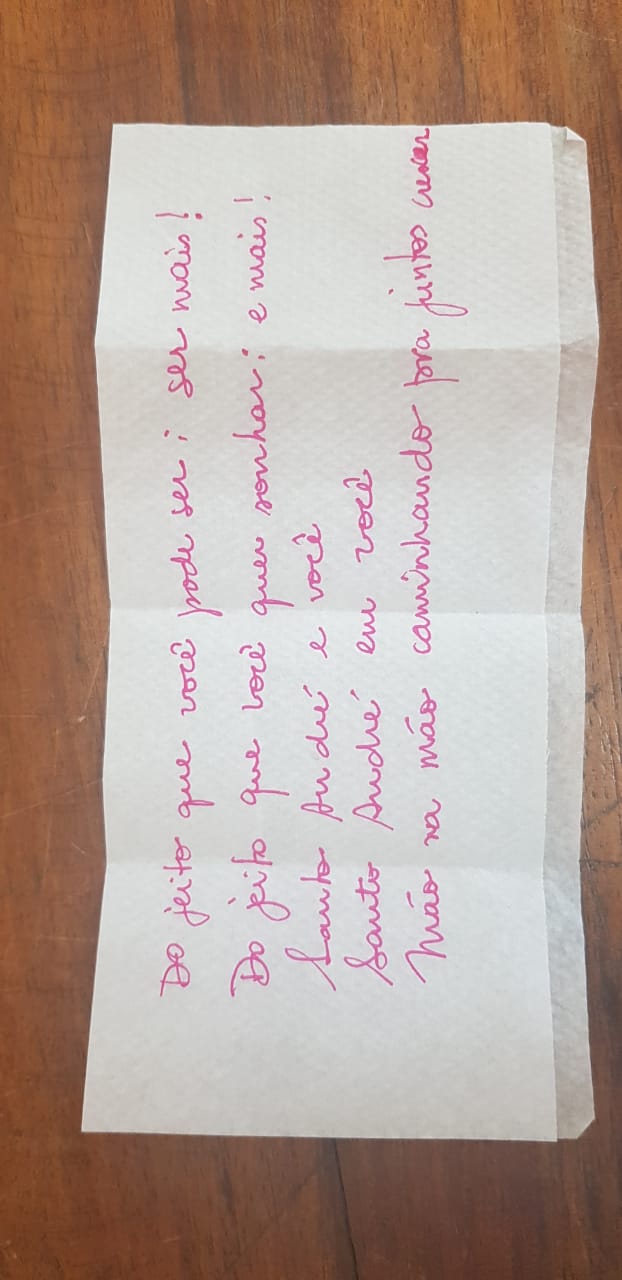 Do jeito que você pode ser; ser mais!
Do jeito que você quer sonhar; e mais!
Santo André e você
Santo André em você
Mão na mão caminhando pra juntos crescer